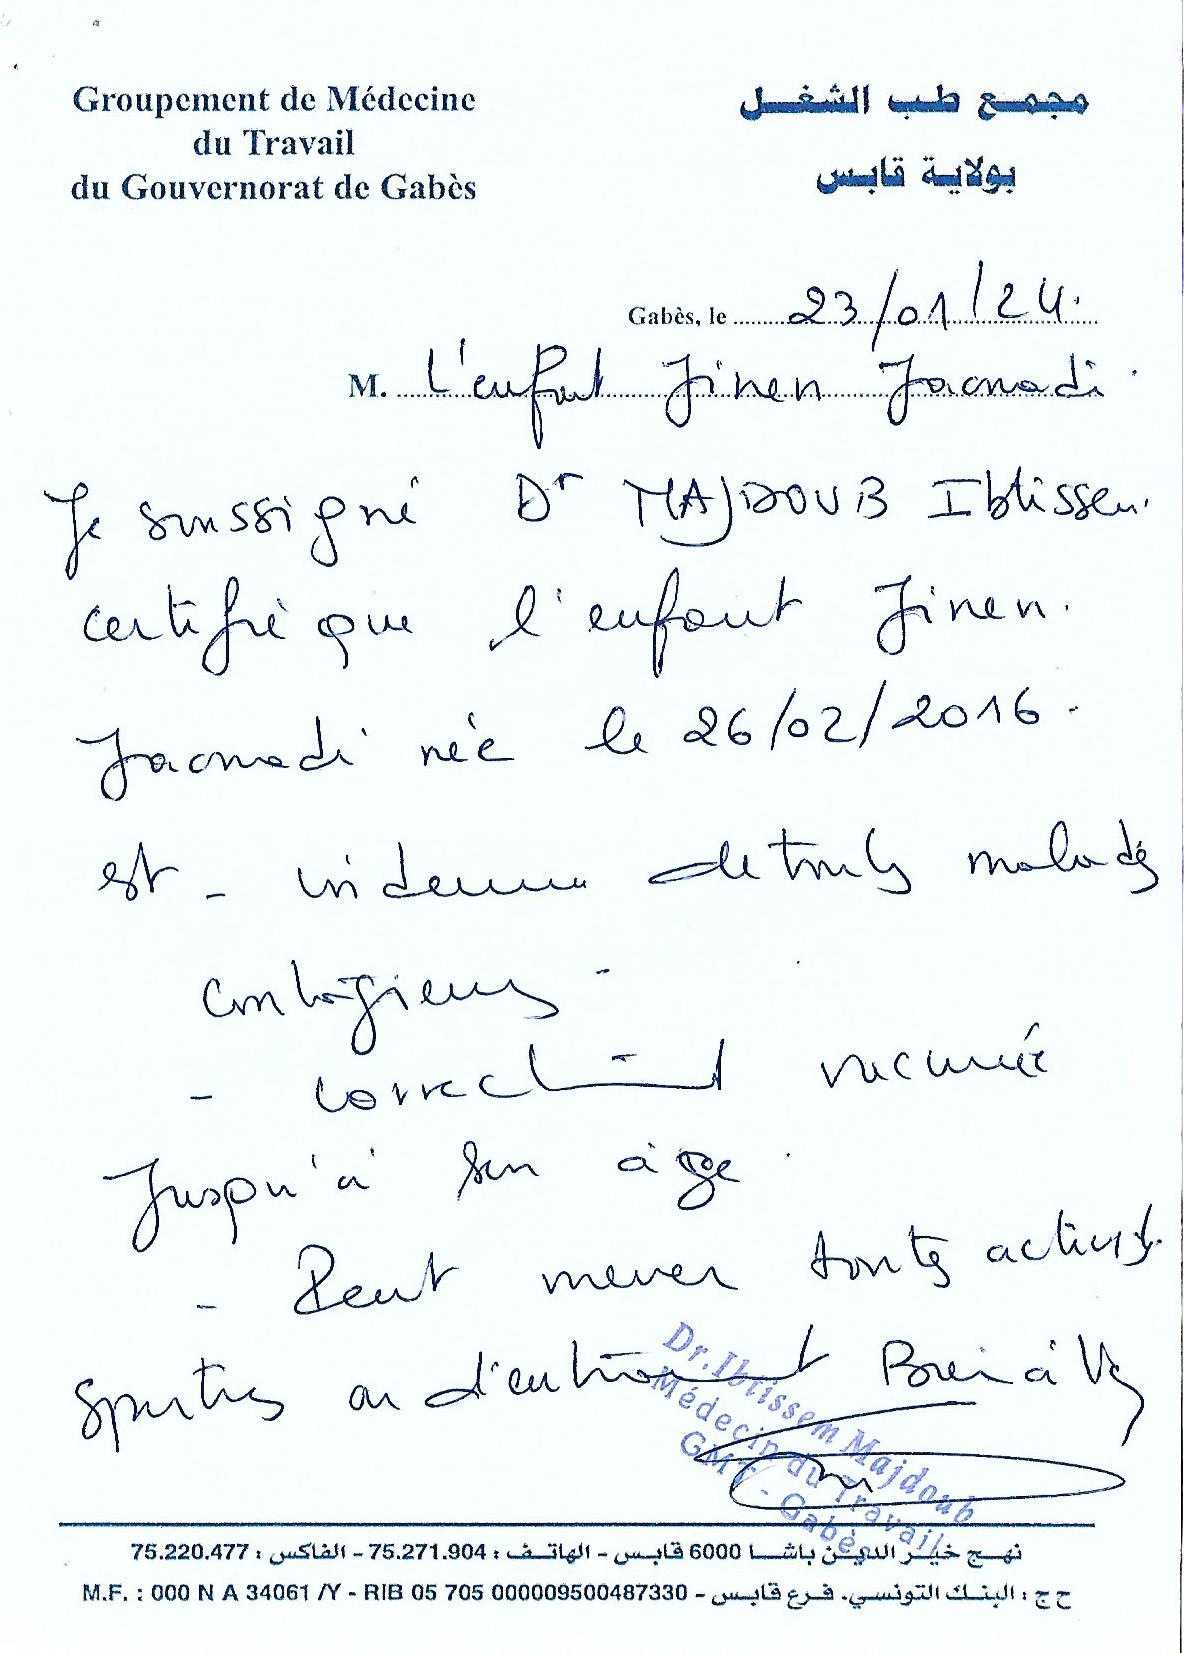 Groupement de Médecine
du Travail
du Gouvernorat de Gabès
مجمع طب الشغل
بولاية قابس
Gabès, le 23/01/24.
M. L'enfant Jinen Jaouadi.
Je soussigné Dr MAJDOUB Ibtissem
certifie que l'enfant Jinen.
Jaouadi née le 26/02/2016.
est - indemne de toutes maladies
contagieuses -
- correctement vaccinée
Jusqu'à son âge.
- Peut mener toutes activités
sportives ou d'entrainement
Dr. Ibtissem Majdoub
Médecin du Travail
GMT - Gabès
نهج خير الدين باشا 6000 قابس - الهاتف : 75.271.904 - الفاكس : 75.220.477
ح ج : البنك التونسي. فرع قابس - M.F. : 000 N A 34061 /Y - RIB 05 705 000009500487330